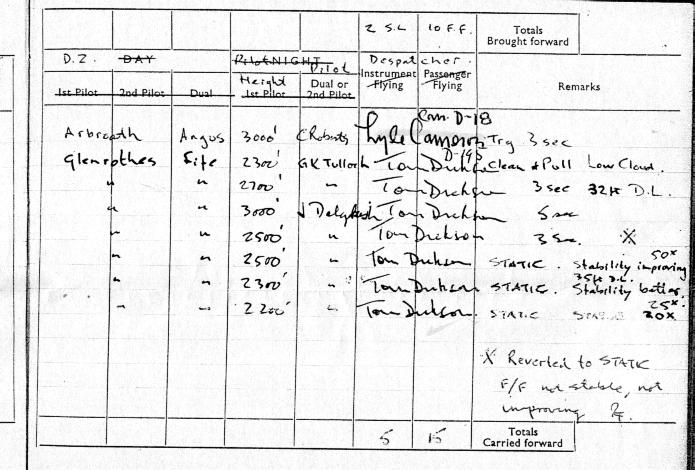 2 S.L 10 F.F. Totals Brought forward
D.Z. DAY Pilot NIGHT Pilot Despatcher.
Height Instrument Passenger
1st Pilot 2nd Pilot Dual 1st Pilot Dual or 2nd Pilot Flying Flying Remarks
Com. D-18
Arbroath Angus 3000' C Roberts Lyle Cameron Trg 3 sec
D-193
Glenrothes Fife 2300' G K Tulloch Tom Dickson Clear & Pull Low Cloud.
" " 2700' " Tom Dickson 3 sec 32ft D.L.
" " 3000' J Dalgleish Tom Dickson 5 sec
" " 2500' " Tom Dickson 3 Sec. X
50x
" " 2500' " Tom Dickson STATIC. Stability improving
35ft D.L.
" " 2300' " Tom Dickson STATIC. Stability better
25x.
" " 2200' " Tom Dickson. STATIC 20x
X Reverted to STATIC
F/F not stable, not
improving
5 15 Totals Carried forward